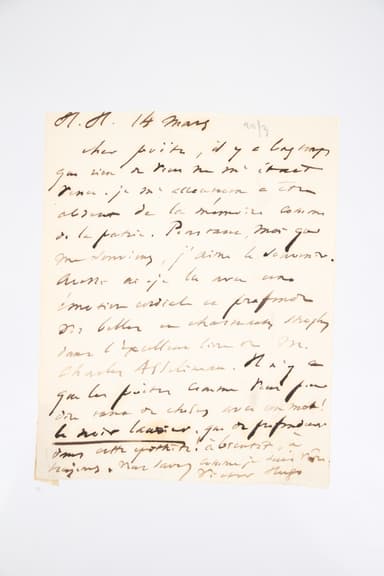 H. H. 14 mars
cher poëte, il y a longtemps
que rien de vous ne m'était
venu. je m'accoutume à être
absent de la mémoire comme
de la patrie. Pourtant, moi qui
me souviens, j'aime le souvenir.
Aussi ai-je lu avec une
émotion cordiale et profonde
vos belles et charmantes strophes
dans l'excellent livre de M.
Charles Asselineau. Il n'y a
que les poëtes comme vous pour
dire tant de choses avec un mot!
le noir laurier, que de profondeur
dans cette épithète! à bientôt, à
toujours. Vous savez comme je suis vôtre.
Victor Hugo